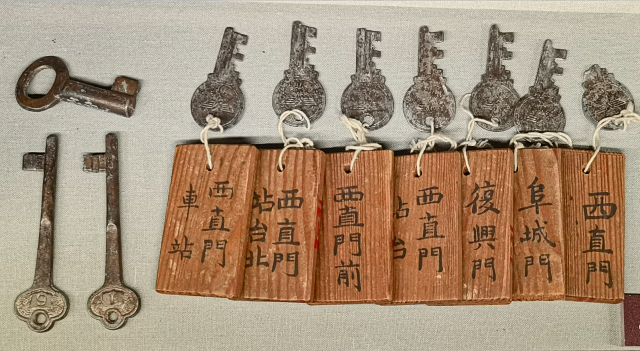 西直門
車站
西直門
站台北
西直門前
西直門
站台
復興門
阜城門
西直門
19